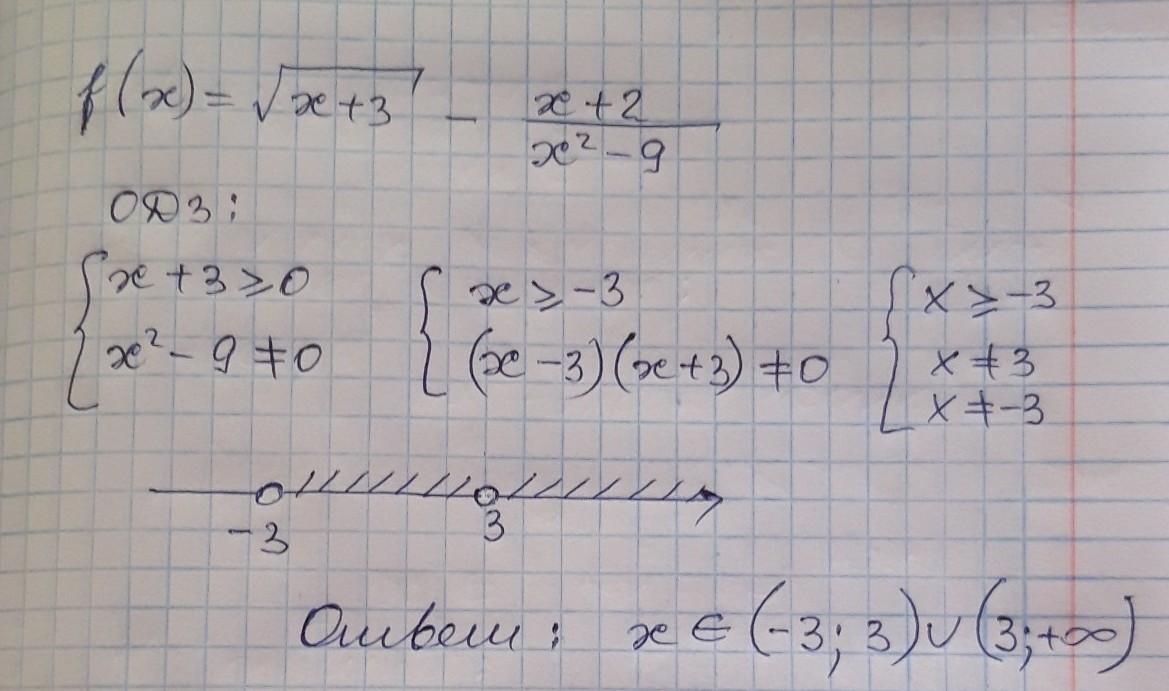 f(x) = √(x+3) − (x+2)/(x²−9)
ОДЗ:
{ x+3 ≥ 0 { x ≥ −3 { x ≥ −3
x²−9 ≠ 0 (x−3)(x+3) ≠ 0 x ≠ 3
x ≠ −3
−3 3
Ответ: x ∈ (−3; 3) ∪ (3; +∞)